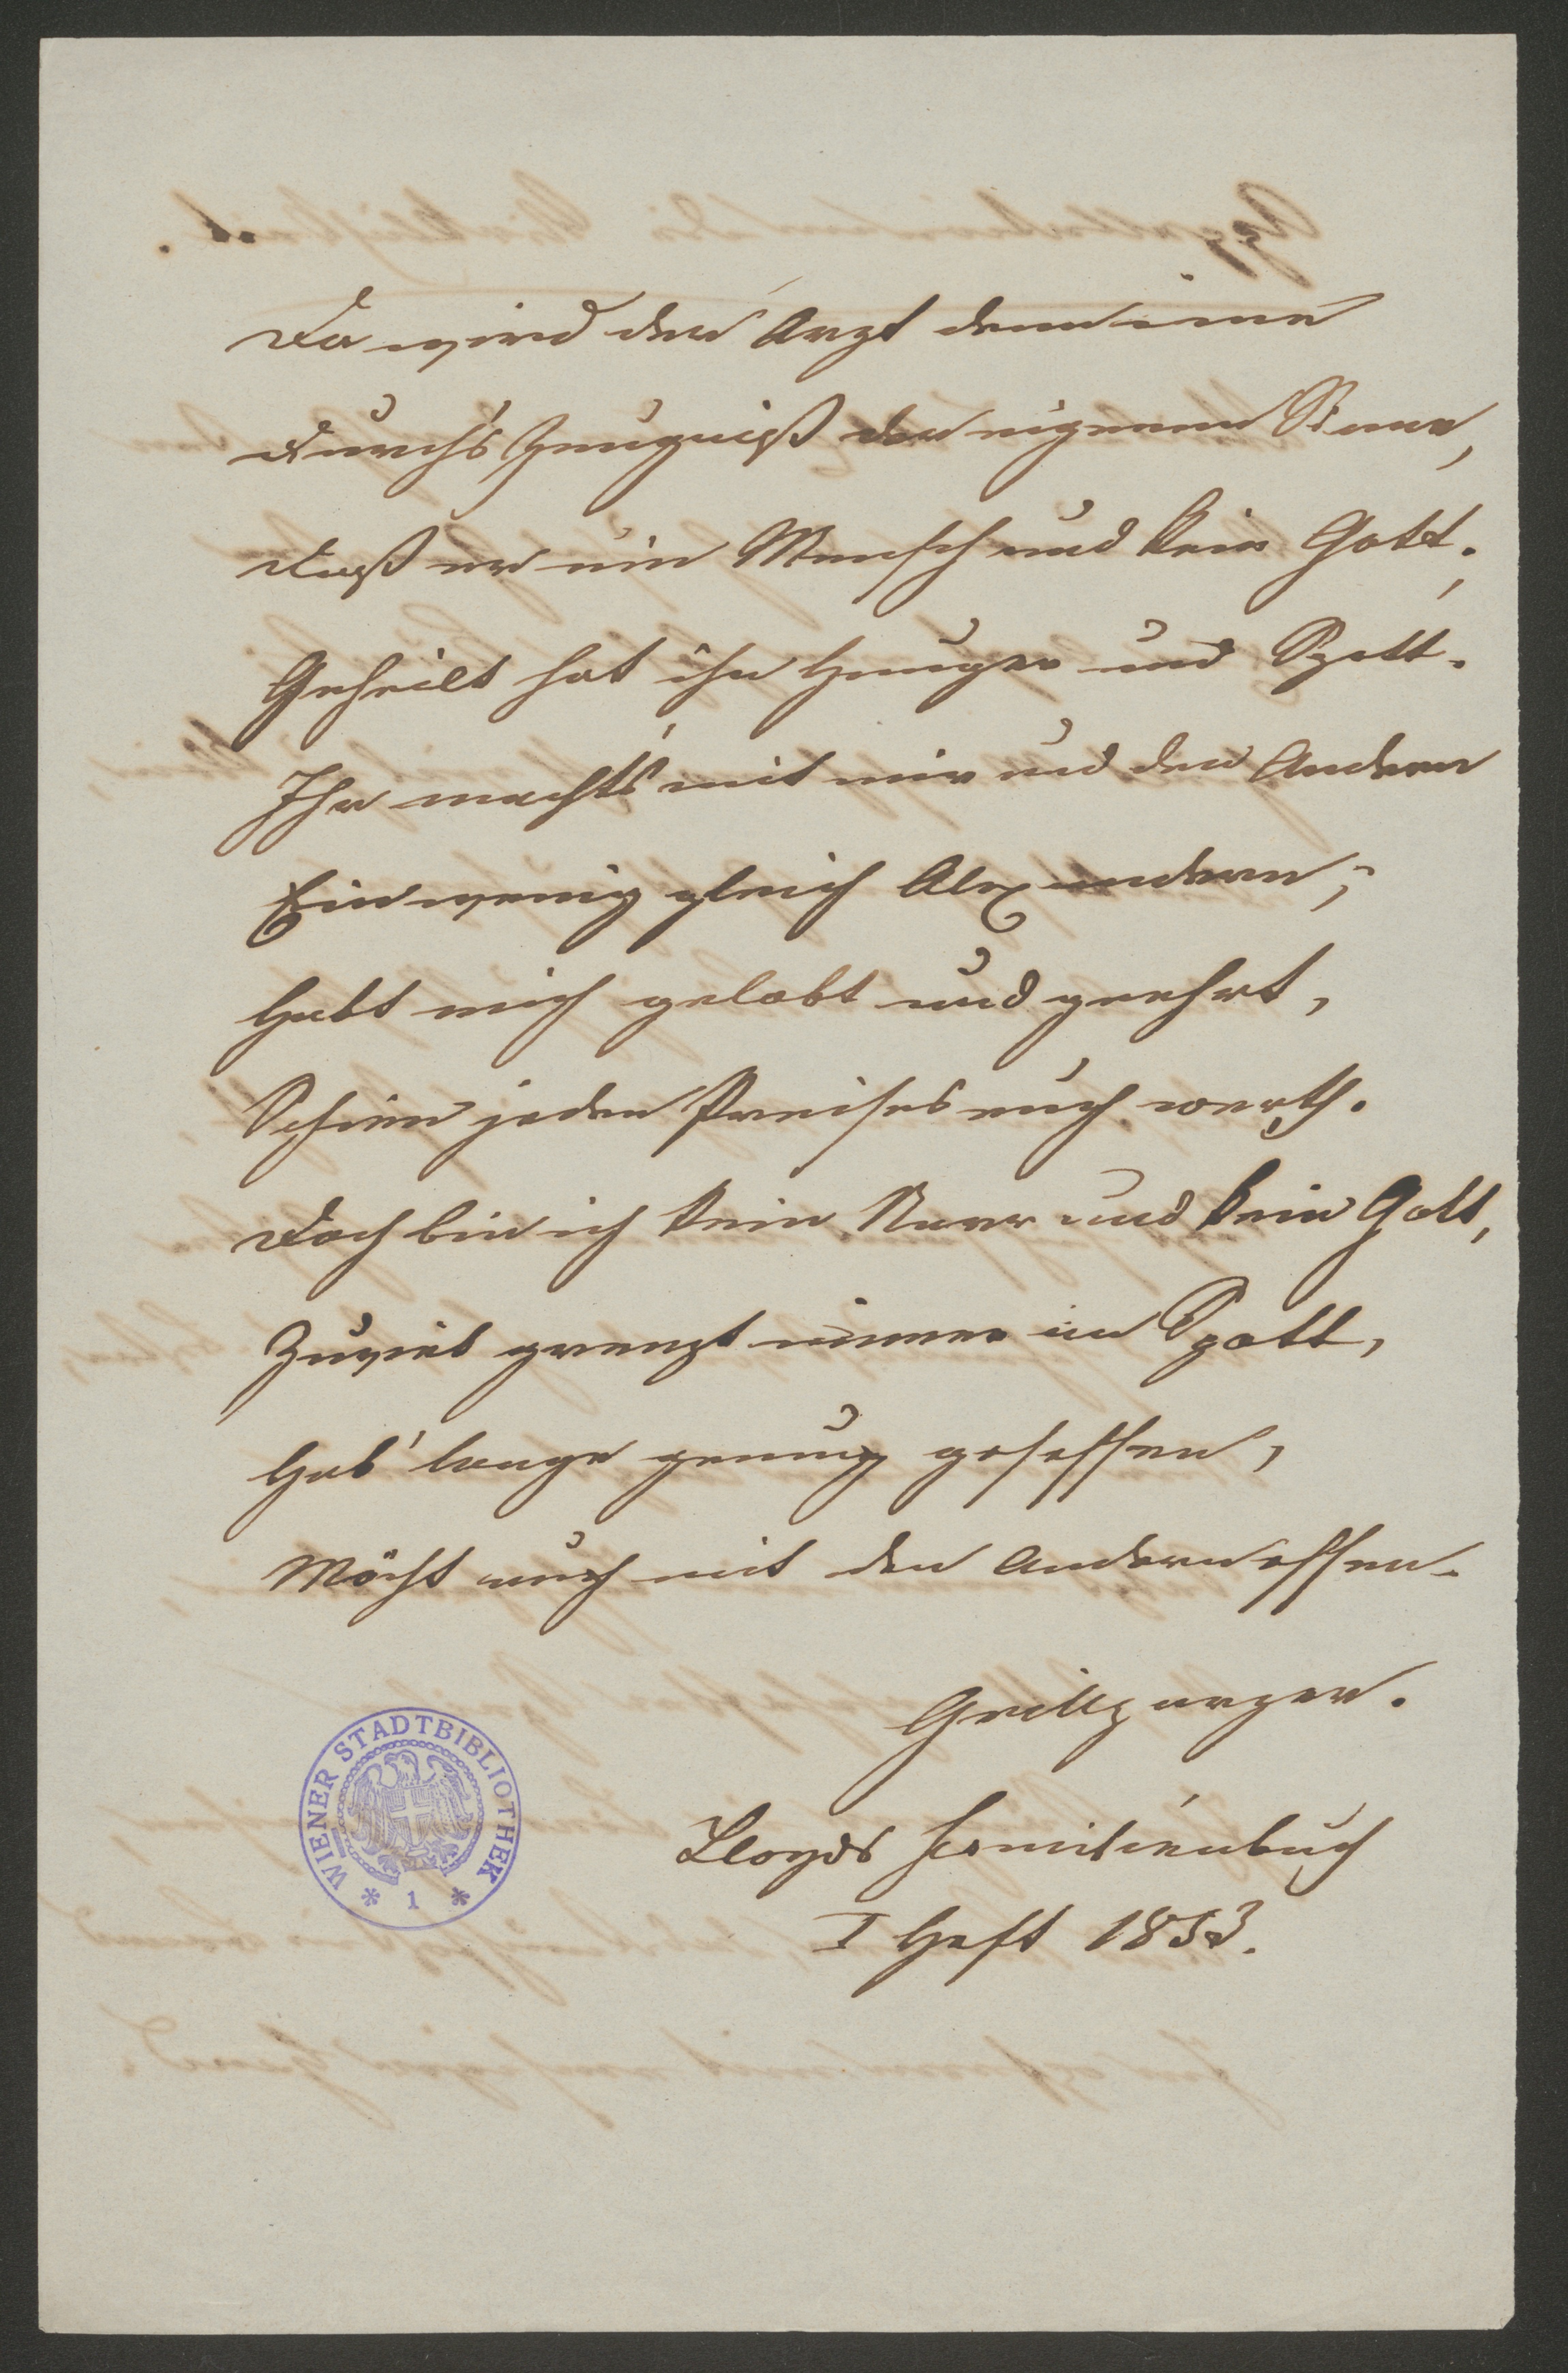 Da wird der Arzt denn inne
Durch's Zeugniß der eigenen Sinne,
Daß er ein Mensch und kein Gott;
Geheilt hat ihn Hunger und Spott.
Ihr macht's mit mir und den Andern
Ein wenig gleich Alexandern;
Habt mich gelobt und geehrt,
Schien jeden Preises euch werth.
Doch bin ich kein Narr und kein Gott,
Zuviel grenzt immer an Spott,
Hab' lange genug gesessen,
Möcht auch mit den Andern essen.
Grillparzer.
Lloyds Familienbuch
I Heft 1853.
WIENER STADTBIBLIOTHEK
* 1 *